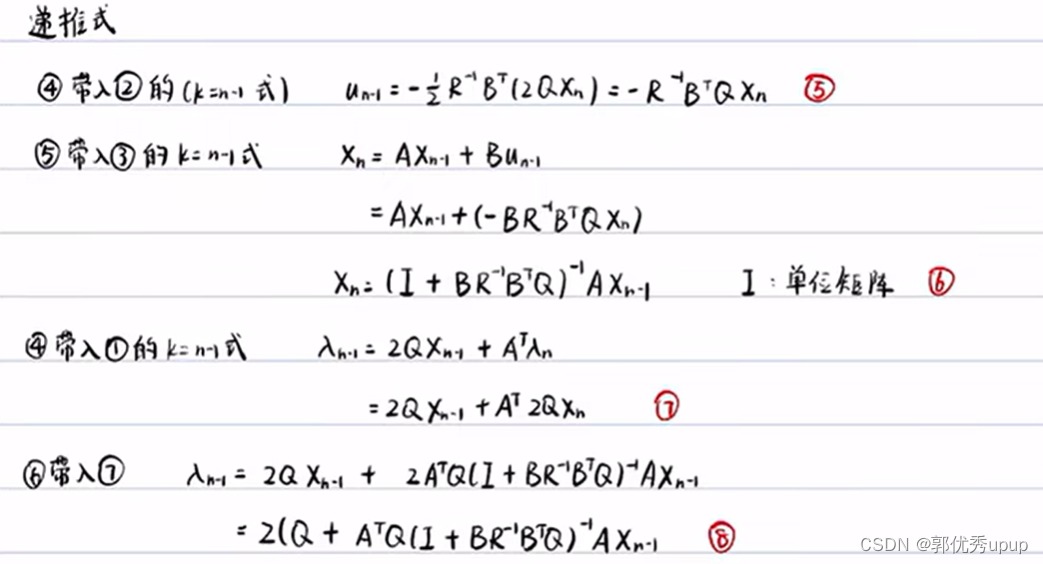 递推式
④带入②的(k=n-1 式) uₙ₋₁ = -½ R⁻¹Bᵀ(2QXₙ) = -R⁻¹BᵀQXₙ ⑤
⑤带入③的 k=n-1式 Xₙ = AXₙ₋₁ + Buₙ₋₁
= AXₙ₋₁ + (-BR⁻¹BᵀQXₙ)
Xₙ = (I + BR⁻¹BᵀQ)⁻¹AXₙ₋₁ I:单位矩阵 ⑥
④带入①的 k=n-1式 λₙ₋₁ = 2QXₙ₋₁ + Aᵀλₙ
= 2QXₙ₋₁ + Aᵀ2QXₙ ⑦
⑥带入⑦ λₙ₋₁ = 2QXₙ₋₁ + 2AᵀQ(I + BR⁻¹BᵀQ)⁻¹AXₙ₋₁
= 2(Q + AᵀQ(I + BR⁻¹BᵀQ)⁻¹AXₙ₋₁ ⑧
CSDN @郭优秀upup